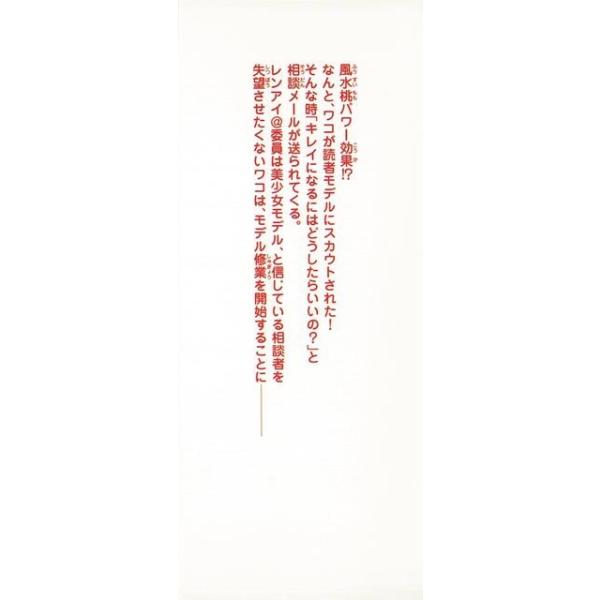 風水桃パワー効果!?
なんと、ワコが読者モデルにスカウトされた!
そんな時「キレイになるにはどうしたらいいの?」と
相談メールが送られてくる。
レンアイ@委員は美少女モデル、と信じている相談者を
失望させたくないワコは、モデル修業を開始することに――